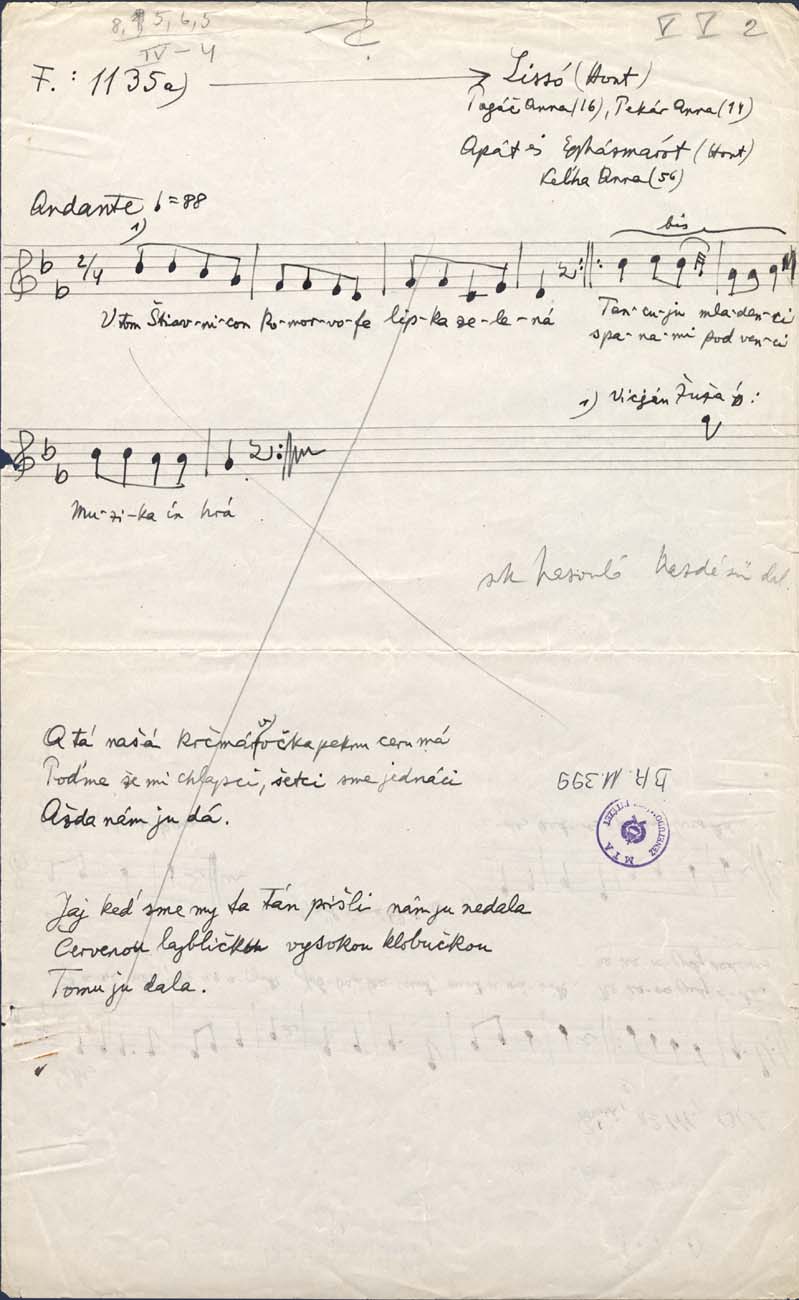 8, 5, 6, 5
IV – 4
V V 2
F.: 1135a) Lissó (Hont)
Pagáč Anna (16), Pekár Anna (14)
Apát és Egyházmarót (Hont)
Keľha Anna (56)
Andante = 88
1) bis
2/4
V tom Štiav-ni-con ko-mor-vo-fe lip-ka ze-le-ná Tan-cu-ju mla-den-ci
spa-na-mi pod ven-ci
1) Vicján Zuza :
Mu-zi-ka ín hrá
sk hasonló kezdésű dal.
A tá našá krčmáročka peknu ceru má
Poďme že mi chlapci, šetci sme jednáci
Ažda nám ju dá.
BR. 11.399
MTA
Jaj keď sme my ta tán prišli nám ju nedala
Červenou lajbličkou vysokou klobučkou
Tomu ju dala.